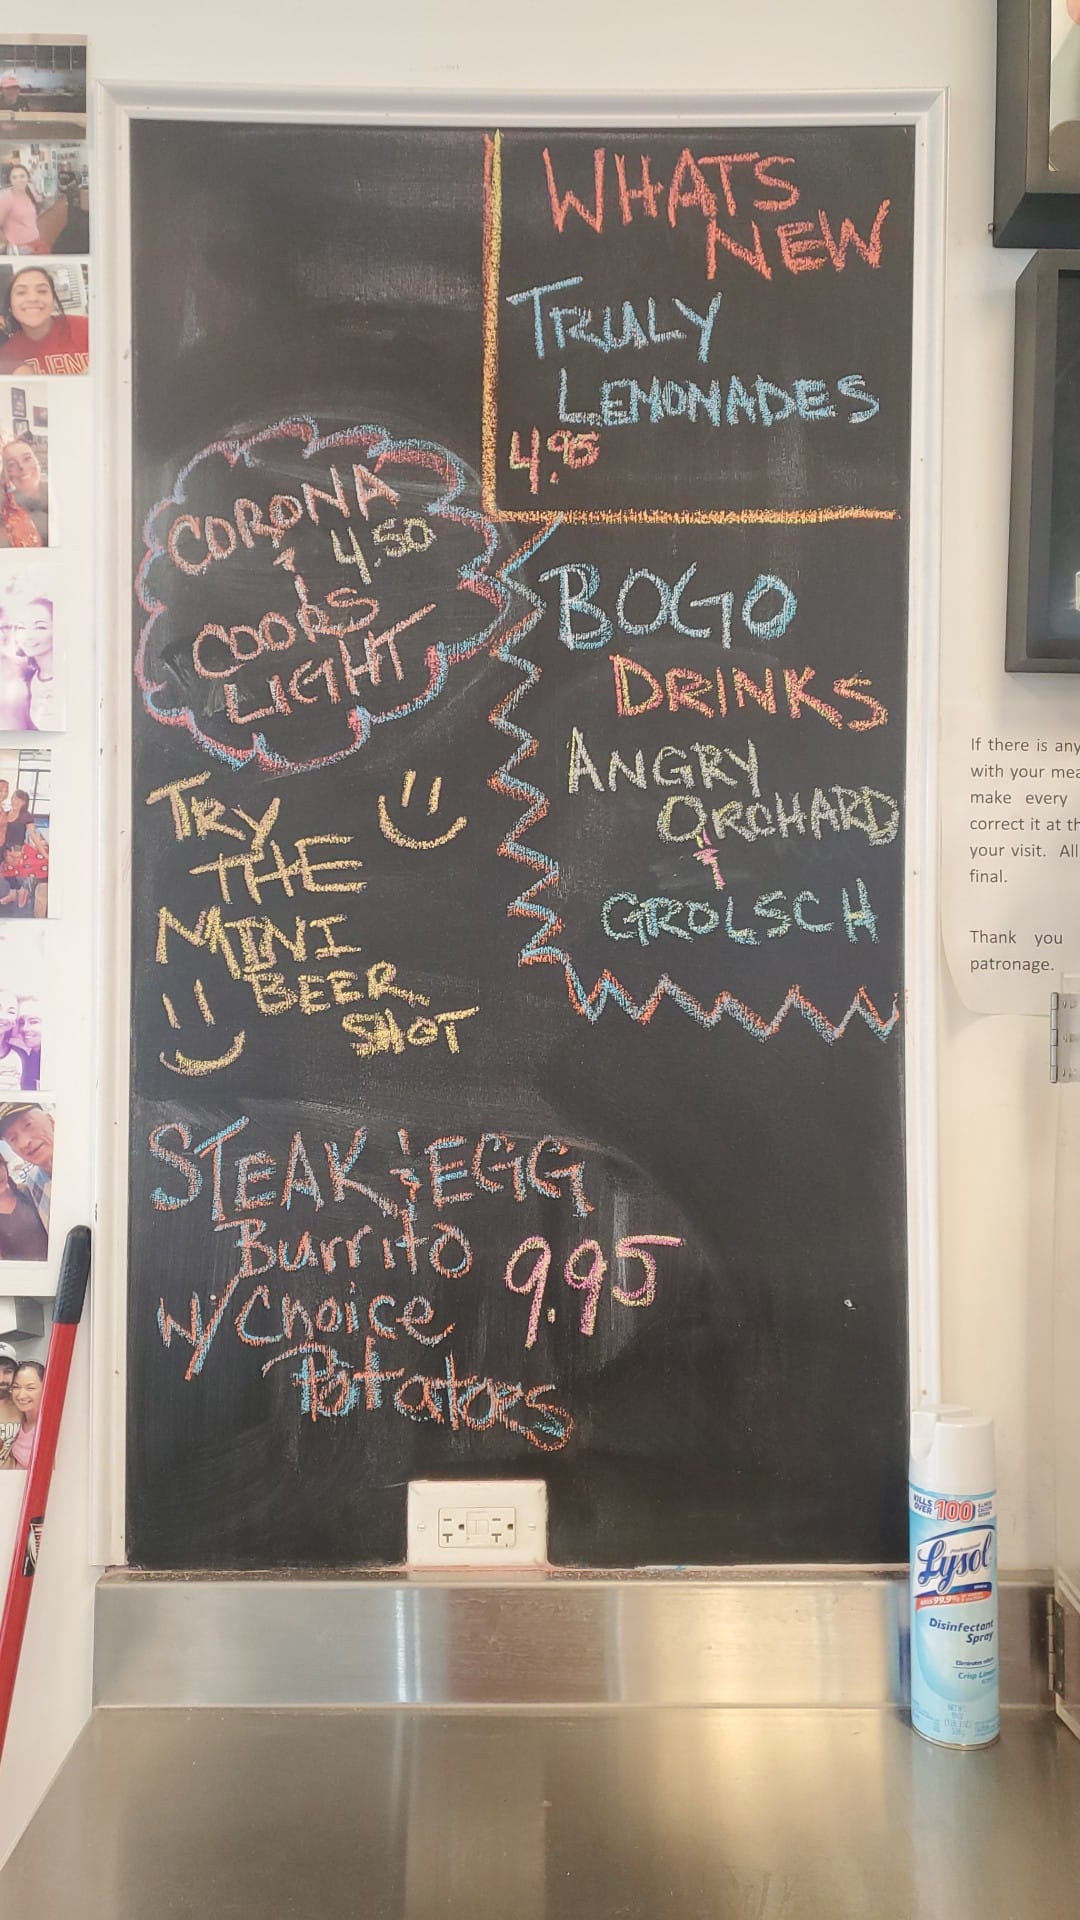 WHATS
NEW
TRULY
LEMONADES
4.95
CORONA
& 4.50
COORS
LIGHT
BOGO
DRINKS
ANGRY
ORCHARD
&
GROLSCH
TRY
THE
MINI
BEER
SHOT
STEAK & EGG
Burrito 9.95
w/ Choice
Potatoes
If there is any
with your mea
make every
correct it at th
your visit. All
final.
Thank you
patronage.
KILLS
OVER 100
Lysol
Disinfectant
Spray
Crisp Linen